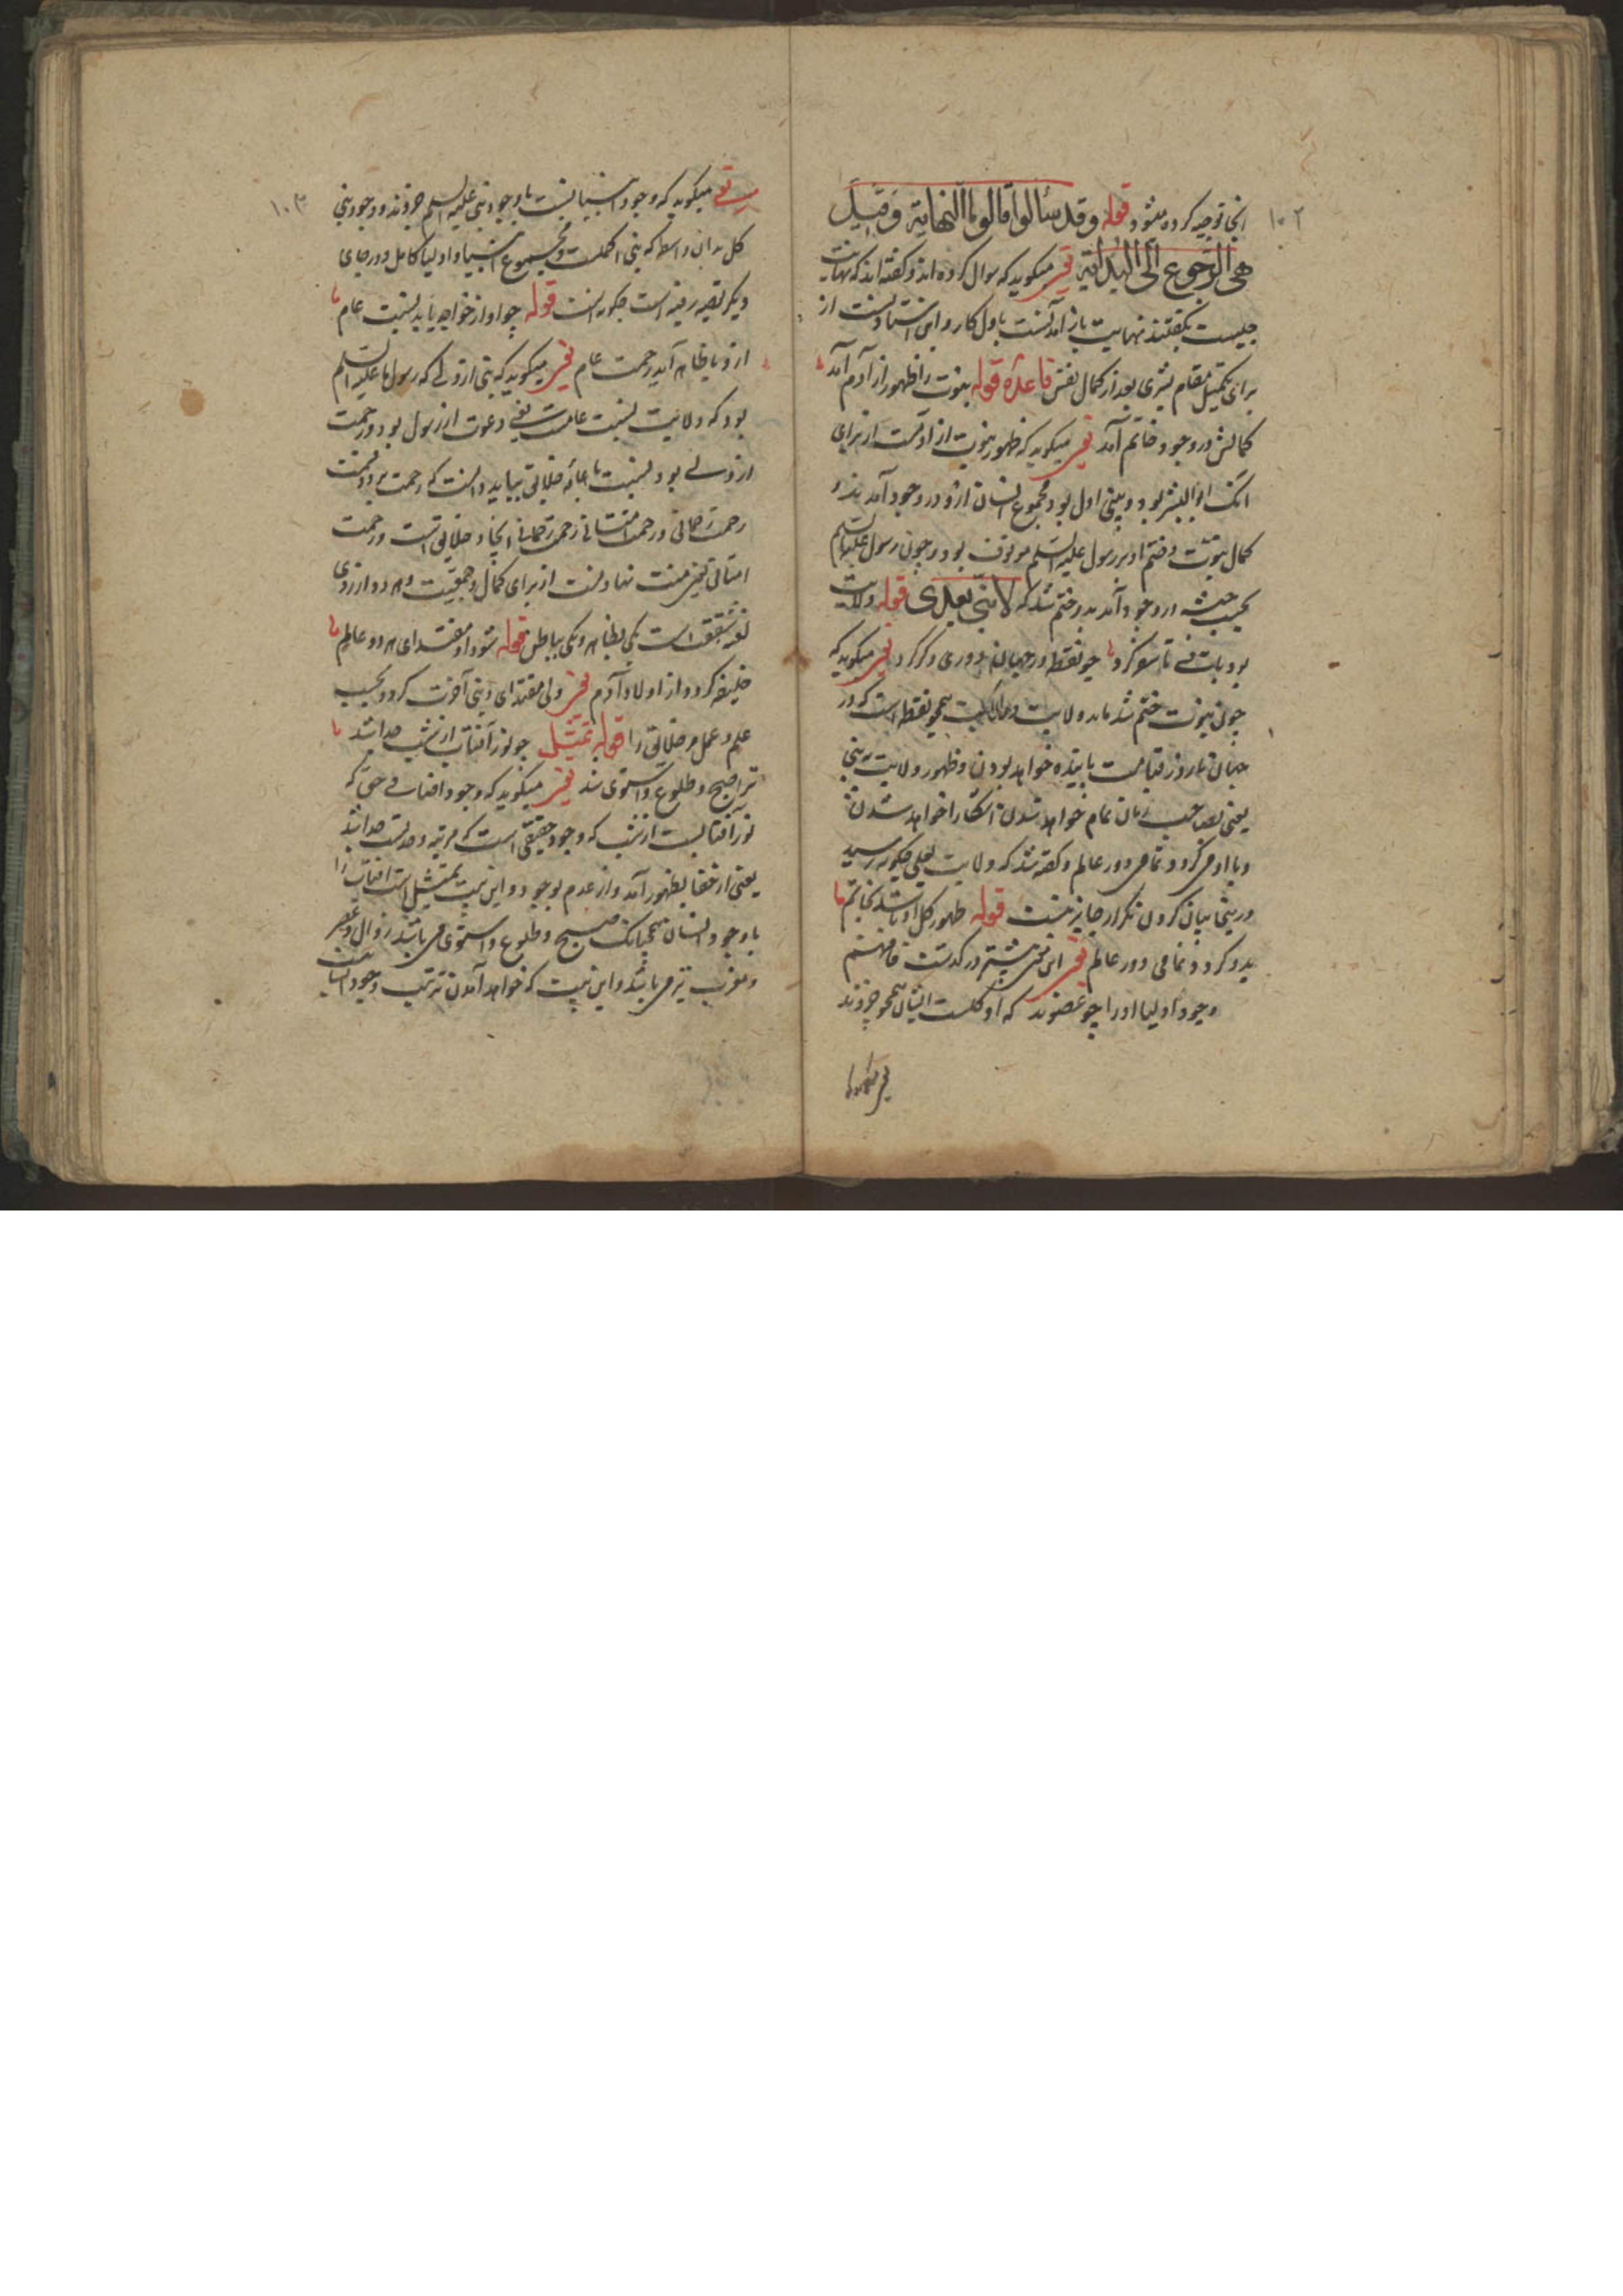 ۱۰۲
انجا توجیه کرده میشود قوله وقد سئالوا قالوا ما النهایة وقیل
هی الرجوع الی البدایة یعنی میکوید که سوال کرده اند و کفته اند که نهایت
چیست بکفتند نهایت باز آمدنست باول کار و این از
برای تکمیل مقام بشری بعد از کمال نفس قاعده قوله نبوت را ظهور از آدم آمد
کمالش در وجود خاتم آمد یعنی میکوید که ظهور نبوت از ادمست از برای
انک ابو البشر بود و نبی اول بود و مجموع انسان ازو در وجود آمدند و
کمال نبوت و ختم او بر رسول علیه السلم موقوف بود و چون رسول علیه السلم
بحسب در وجود آمد بدو ختم شد که لا نبی بعدی قوله ولایت
بود باقی تا سفر کرد چو نقطه در جهان دوری دکر کرد یعنی میکوید که
چون نبوت ختم شد ماند ولایت و همچو نقطه است که در
جهان تا روز قیامت پاینده خواهد بودن و ظهور ولایت نبی
یعنی بصاحب زمان تمام خواهد شدن آشکارا خواهد شدن
و با او می کردد تمامی دور عالم و کفته شد که ولایت بعلی چکونه رسید
درینجا بیان کردن تکرار جایز نیست قوله ظهور کل او باشد بخاتم
بدو کردد تمامی دور عالم یعنی این معنی پیشتر در کذشت فافهم
وجود اولیا او را چو عضوند که او کلست ایشان همچو جزوند
یعنی میکوید
۱۰۳
یعنی میکوید که وجود انبیا نسبت با وجود نبی علیه السلم جزوند و وجود نبی
کل بدان واسطه که نبی اکملست و مجموع انبیا و اولیا کامل و در جای
دیکر قصه رفته است چکونه است قوله چو او از خواجه یابد نسبت عام
ازو با ظاهر آید رحمت عام یعنی میکوید که نبی ازوی که رسول ما علیه السلم
بود که ولایت نسبت عامست یعنی دعوت از رسول بود و رحمت
ازوی بود نسبت با عامه خلایق بباید دانست که رحمت بر دو قسمت
رحمت رحمانی و رحمت امتنانی رحمت رحمانی ایجاد خلایق است و رحمت
امتنانی یعنی منت نهادنست از برای کمال و جمعیت و هر دو از روی
شفقت است یکی بظاهر و یکی بباطن قوله شود او مقتدای هر دو عالم
خلیفه کردد از اولاد آدم یعنی ولی مقتدای دینی آخرت کردد بحسب
علم و عمل مر خلایق را قوله تمثیل چو نور آفتاب از شب جدا شد
ترا صبح و طلوع و استوی شد یعنی میکوید که وجود آفتاب وحی که
نور آفتابست از شب که وجود حقیقی است که مرتبه وحدتست جدا شد
یعنی از خفا بظهور آمد و از عدم بوجود و این بیت تمثیل است آفتاب را
با وجود انسان همچنانک صبح و طلوع و استوی می باشد زوال و عصر
و مغرب نیز می باشد و این بیت که خواهد آمدن ترتیب وجود انسان